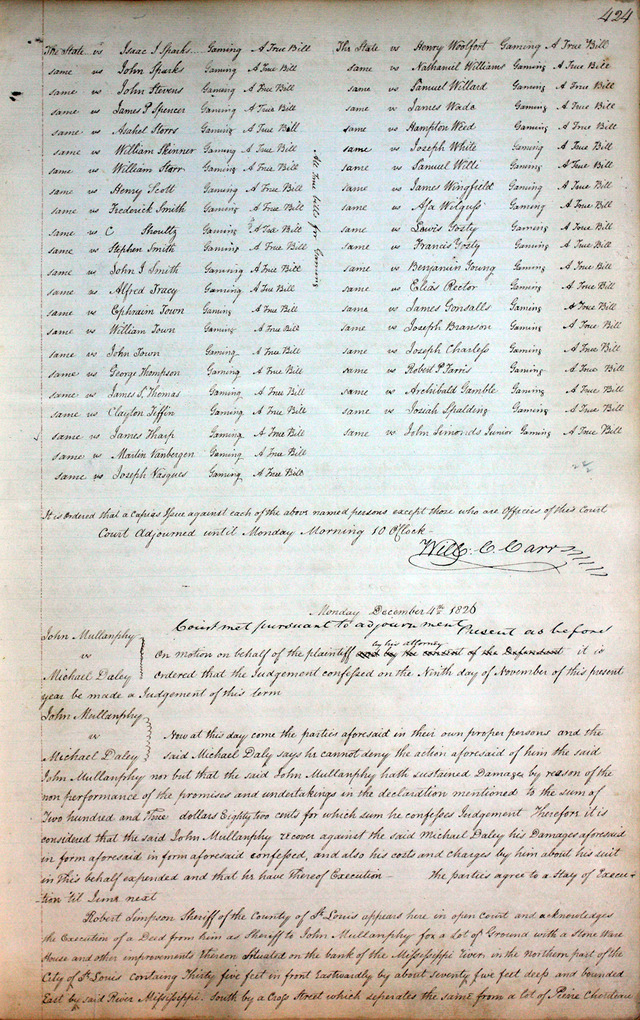 424
The State vs Isaac J Sparks Gaming A True Bill
same vs John Sparks Gaming A True Bill
same vs John Stevens Gaming A True Bill
same vs James P Spencer Gaming A True Bill
same vs Asahel Storrs Gaming A True Bill
same vs William Skinner Gaming A True Bill
same vs William Starr Gaming A True Bill
same vs Henry Scott Gaming A True Bill
same vs Frederick Smith Gaming A True Bill
same vs C Shoultz Gaming A True Bill
same vs Stephen Smith Gaming A True Bill
same vs John J Smith Gaming A True Bill
same vs Alfred Tracy Gaming A True Bill
same vs Ephraim Town Gaming A True Bill
same vs William Town Gaming A True Bill
same vs John Town Gaming A True Bill
same vs George Thompson Gaming A True Bill
same vs James S. Thomas Gaming A True Bill
same vs Clayton Tiffin Gaming A True Bill
same vs James Tharp Gaming A True Bill
same vs Martin Vanbergen Gaming A True Bill
same vs Joseph Vasques Gaming A True Bill
All True bills for Gaming
The State vs Henry Woolfort Gaming A True Bill
same vs Nathaniel Williams Gaming A True Bill
same vs Samuel Willard Gaming A True Bill
same vs James Wade Gaming A True Bill
same vs Hampton Weed Gaming A True Bill
same vs Joseph White Gaming A True Bill
same vs Samuel Willi Gaming A True Bill
same vs James Wingfield Gaming A True Bill
same vs Asa Wilguss Gaming A True Bill
same vs Lewis Yosty Gaming A True Bill
same vs Francis Yosty Gaming A True Bill
same vs Benjamin Young Gaming A True Bill
same vs Elias Rector Gaming A True Bill
same vs James Gonsalls Gaming A True Bill
same vs Joseph Branson Gaming A True Bill
same vs Joseph Charless Gaming A True Bill
same vs Robert P Farris Gaming A True Bill
same vs Archibald Gamble Gaming A True Bill
same vs Josiah Spalding Gaming A True Bill
same vs John Simonds Junior Gaming A True Bill
It is ordered that a Capias Issue against each of the above named persons except those who are Officers of this Court
Court Adjourned until Monday Morning 10 OClock
Will: C Carr
Monday December 4th 1826
Court met pursuant to adjournment Present as before
John Mullanphy
vs
Michael Daley
by his attorney
On motion on behalf of the plaintiff and by the consent of the Defendant it is
ordered that the Judgement confessed on the Ninth day of November of this present
year be made a Judgement of this term
John Mullanphy
vs
Michael Daley
Now at this day come the parties aforesaid in their own proper persons and the
said Michael Daly says he cannot deny the action aforesaid of him the said
John Mullanphy nor but that the said John Mullanphy hath sustained Damage by reason of the
non performance of the promises and undertakings in the declaration mentioned to the sum of
Two hundred and Three dollars Eighty two cents for which sum he confesses Judgement Therefore it is
considered that the said John Mullanphy recover against the said Michael Daley his Damages aforesaid
in form aforesaid in form aforesaid confessed, and also his costs and charges by him about his suit
in this behalf expended and that he have thereof Execution - the parties agree to a Stay of Execu-
tion 'til June next
Robert Simpson Sheriff of the County of St Louis appears here in open Court and acknowledges
the Execution of a Deed from him as Sheriff to John Mullanphy for a Lot of Ground with a Stone Ware
House and other improvements thereon Situated on the bank of the Mississippi River in the northern part of the
City of St Louis containg Thirty five feet in front Eastwardly by about seventy five feet deep and bounded
East by said River Mississippi. South by a Cross Street which seperates the same from a lot of Peirre Chouteau